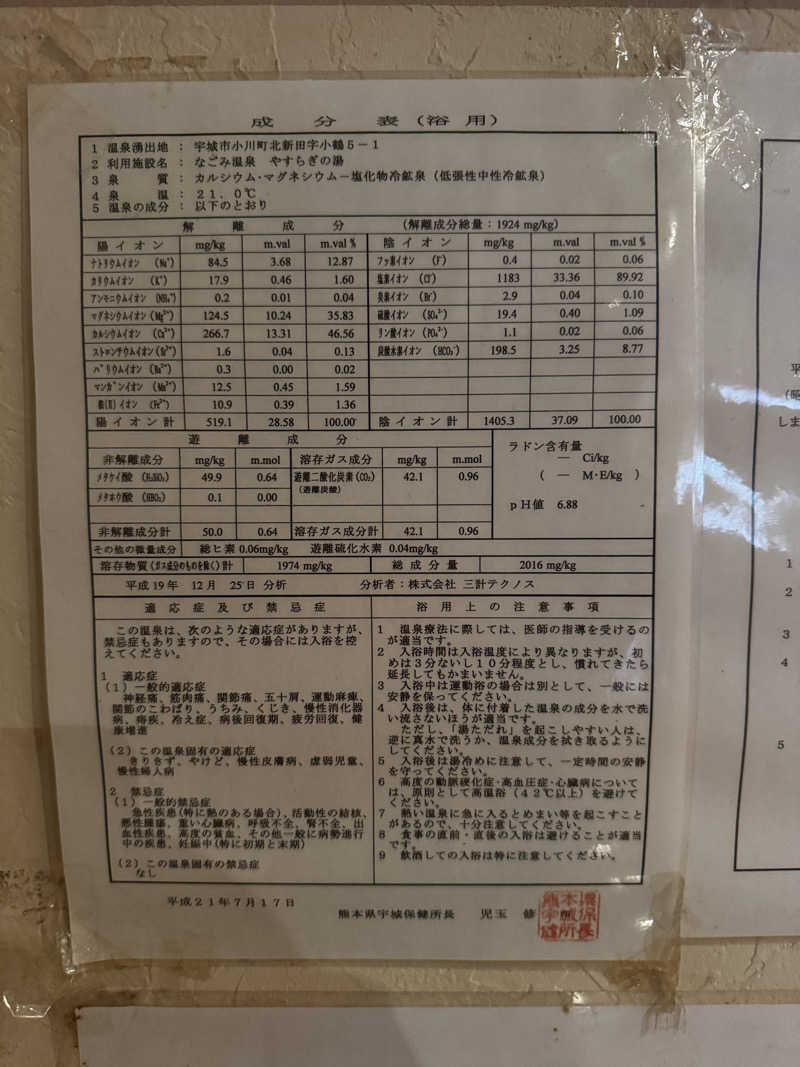 成分表(浴用)
1 温泉湧出地 : 宇城市小川町北新田字小鶴5-1
2 利用施設名 : なごみ温泉 やすらぎの湯
3 泉質 : カルシウム・マグネシウム-塩化物冷鉱泉(低張性中性冷鉱泉)
4 泉温 : 21.0℃
5 温泉の成分 : 以下のとおり
解離成分 (解離成分総量:1924 mg/kg)
陽イオン mg/kg m.val m.val % 陰イオン mg/kg m.val m.val %
ナトリウムイオン (Na⁺) 84.5 3.68 12.87 フッ素イオン (F⁻) 0.4 0.02 0.06
カリウムイオン (K⁺) 17.9 0.46 1.60 塩素イオン (Cl⁻) 1183 33.36 89.92
アンモニウムイオン (NH₄⁺) 0.2 0.01 0.04 臭素イオン (Br⁻) 2.9 0.04 0.10
マグネシウムイオン (Mg²⁺) 124.5 10.24 35.83 硫酸イオン (SO₄²⁻) 19.4 0.40 1.09
カルシウムイオン (Ca²⁺) 266.7 13.31 46.56 リン酸イオン (PO₄³⁻) 1.1 0.02 0.06
ストロンチウムイオン (Sr²⁺) 1.6 0.04 0.13 炭酸水素イオン (HCO₃⁻) 198.5 3.25 8.77
バリウムイオン (Ba²⁺) 0.3 0.00 0.02
マンガンイオン (Mn²⁺) 12.5 0.45 1.59
鉄(II)イオン (Fe²⁺) 10.9 0.39 1.36
陽イオン計 519.1 28.58 100.00 陰イオン計 1405.3 37.09 100.00
遊離成分
非解離成分 mg/kg m.mol 溶存ガス成分 mg/kg m.mol
メタケイ酸 (H₂SiO₃) 49.9 0.64 遊離二酸化炭素(CO₂) 42.1 0.96
(遊離炭酸)
メタホウ酸 (HBO₂) 0.1 0.00
非解離成分計 50.0 0.64 溶存ガス成分計 42.1 0.96
ラドン含有量
― Ci/kg
( ― M・E/kg )
pH値 6.88
その他の微量成分 総ヒ素 0.06mg/kg 遊離硫化水素 0.04mg/kg
溶存物質(ガス成分のものを除く)計 1974 mg/kg 総成分量 2016 mg/kg
平成19年 12月 25日 分析 分析者:株式会社 三計テクノス
適応症及び禁忌症
この温泉は、次のような適応症がありますが、
禁忌症もありますので、その場合には入浴を控
えてください。
1 適応症
(1)一般的適応症
神経痛、筋肉痛、関節痛、五十肩、運動麻痺、
関節のこわばり、うちみ、くじき、慢性消化器
病、痔疾、冷え症、病後回復期、疲労回復、健
康増進
(2)この温泉固有の適応症
きりきず、やけど、慢性皮膚病、虚弱児童、
慢性婦人病
2 禁忌症
(1)一般的禁忌症
急性疾患(特に熱のある場合)、活動性の結核、
悪性腫瘍、重い心臓病、呼吸不全、腎不全、出
血性疾患、高度の貧血、その他一般に病勢進行
中の疾患、妊娠中(特に初期と末期)
(2)この温泉固有の禁忌症
なし
浴用上の注意事項
1 温泉療法に際しては、医師の指導を受けるの
が適当です。
2 入浴時間は入浴温度により異なりますが、初
めは3分ないし10分程度とし、慣れてきたら
延長してもかまいません。
3 入浴中は運動浴の場合は別として、一般には
安静を保ってください。
4 入浴後は、体に付着した温泉の成分を水で洗
い流さないほうが適当です。
ただし、「湯ただれ」を起こしやすい人は、
逆に真水で洗うか、温泉成分を拭き取るように
してください。
5 入浴後は湯冷めに注意して、一定時間の安静
を守ってください。
6 高度の動脈硬化症・高血圧症・心臓病について
は、原則として高温浴(42℃以上)を避けて
ください。
7 熱い温泉に急に入るとめまい等を起こすこと
があるので、十分注意してください。
8 食事の直前・直後の入浴は避けることが適当
です。
9 飲酒しての入浴は特に注意してください。
平成21年7月17日
熊本県宇城保健所長 児玉 修
熊本県
宇城保
健所長
平
します
1
2
3
4
5